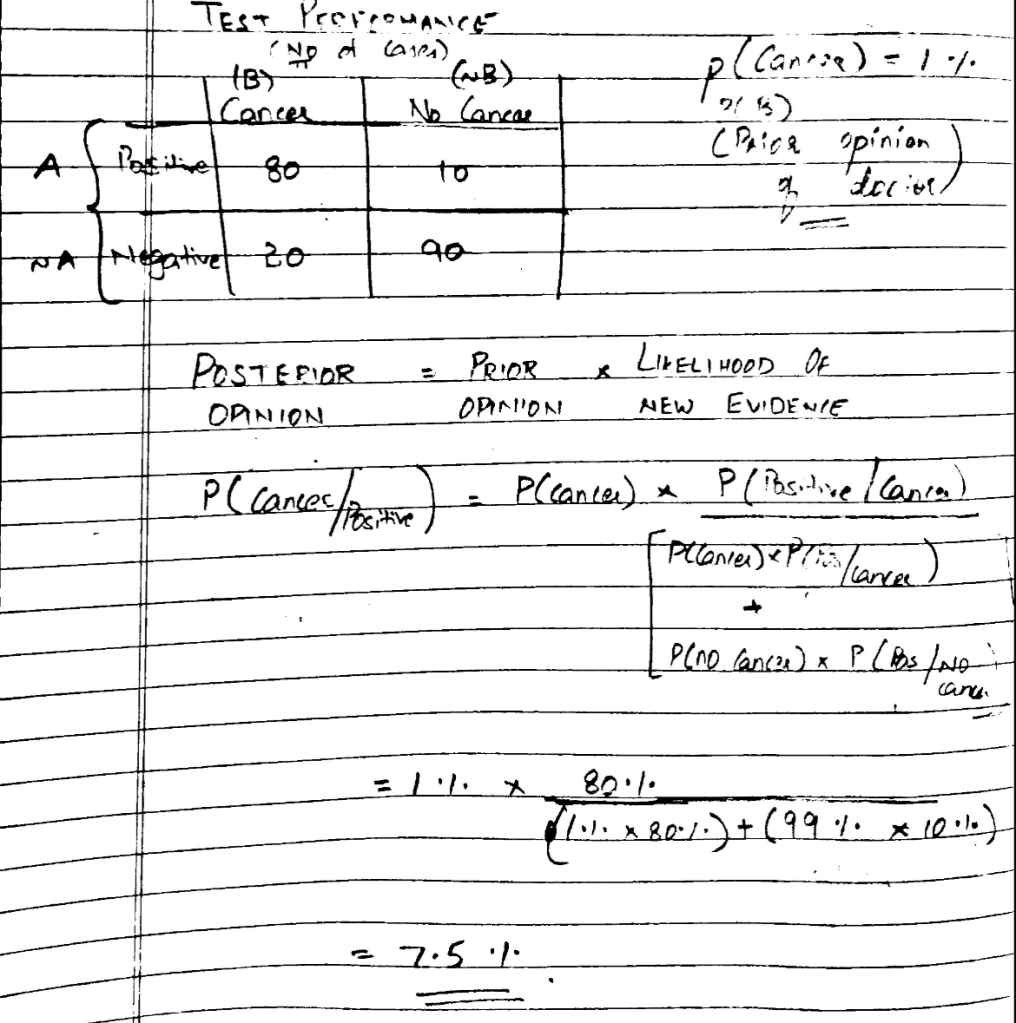 TEST PERFORMANCE
(No of Cases)
(B) (~B)
Cancer No Cancer
A Positive 80 10
~A Negative 20 90
p(Cancer) = 1%
(Prior opinion
of doctor)
POSTERIOR = PRIOR × LIKELIHOOD OF
OPINION OPINION NEW EVIDENCE
P(Cancer/Positive) = P(Cancer) × P(Positive/Cancer)
[P(Cancer) × P(Pos/Cancer)
+
P(no Cancer) × P(Pos/No
cancer
= 1% × 80%
(1% × 80%) + (99% × 10%)
= 7.5%